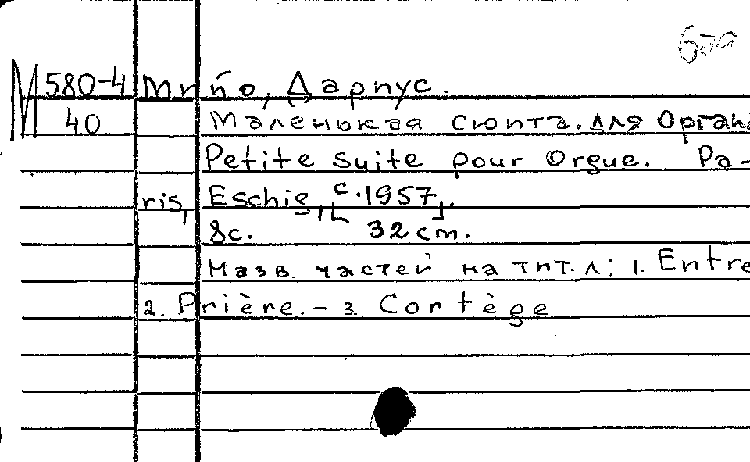 М 580-4 Мийо, Дариус.
40 Маленькая сюита. для Органа
Petite suite pour Orgue. Pa-
ris, Eschig, [с. 1957].
8с. 32 cm.
Назв. частей на тит. л: 1. Entre
2. Prière. – 3. Cortège